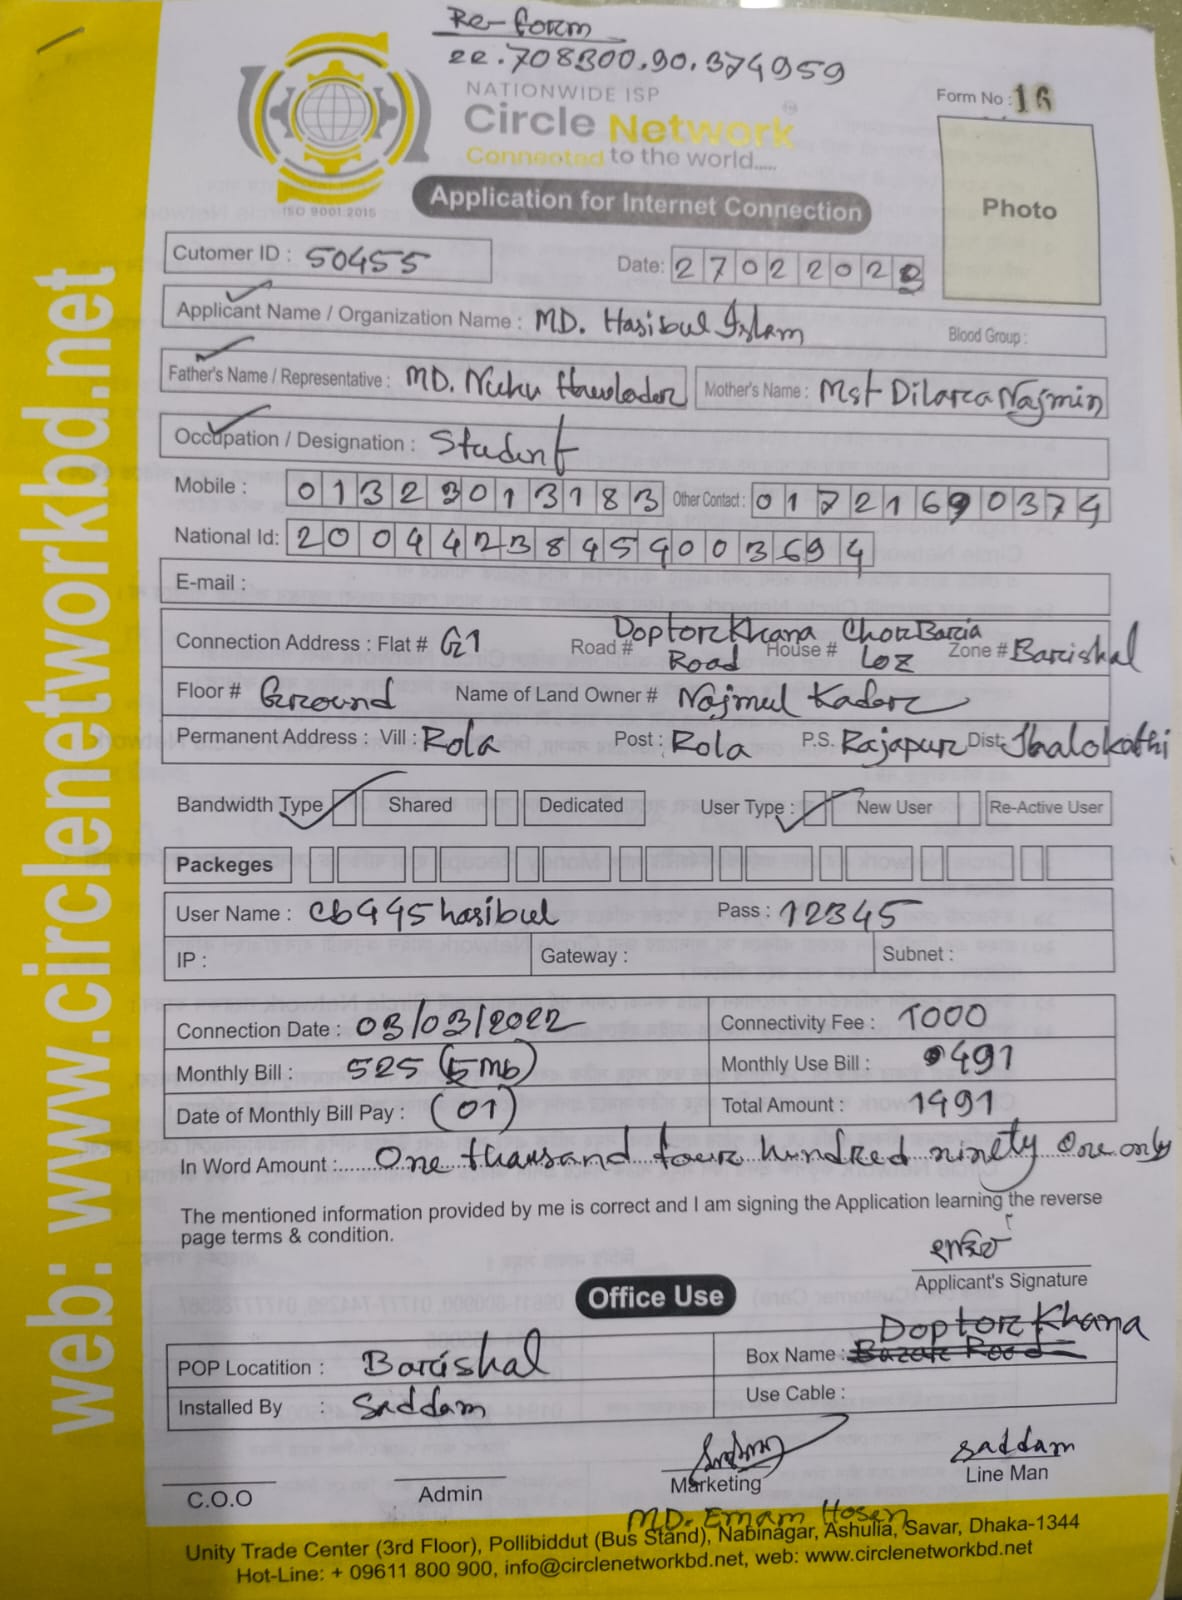 Re-form
22.708300,90.374959
NATIONWIDE ISP
Circle Network
Connected to the world.....
ISO 9001:2015
Form No : 16
Application for Internet Connection
Photo
Cutomer ID : 50455
Date: 27022022
Applicant Name / Organization Name : MD. Hasibul Islam
Blood Group :
Father's Name / Representative : MD. Nuhu Hawlader
Mother's Name : Mst Dilara Najmin
Occupation / Designation : Student
Mobile : 01323013183 Other Contact : 01721690374
National Id: 20044238459003694
E-mail :
Connection Address : Flat # G1 Road # Doptor Khana Road House # Choz Baria Loz Zone # Barishal
Floor # Ground Name of Land Owner # Najmul Kador
Permanent Address : Vill : Rola Post : Rola P.S. Rajapur Dist: Jhalokathi
Bandwidth Type Shared Dedicated User Type : New User Re-Active User
Packeges
User Name : cb995hasibul Pass : 12345
IP : Gateway : Subnet :
Connection Date : 03/03/2022 Connectivity Fee : 1000
Monthly Bill : 525 (5 mb) Monthly Use Bill : 491
Date of Monthly Bill Pay : (01) Total Amount : 1491
In Word Amount :...... One thausand four hundred ninety One only
The mentioned information provided by me is correct and I am signing the Application learning the reverse
page terms & condition.
Applicant's Signature
Office Use
POP Locatition : Barishal Box Name : Doptor Khana
Installed By : Saddam Use Cable :
saddam
C.O.O Admin Marketing Line Man
MD. Emam Hosen
Unity Trade Center (3rd Floor), Pollibiddut (Bus Stand), Nabinagar, Ashulia, Savar, Dhaka-1344
Hot-Line: + 09611 800 900, info@circlenetworkbd.net, web: www.circlenetworkbd.net
web: www.circlenetworkbd.net